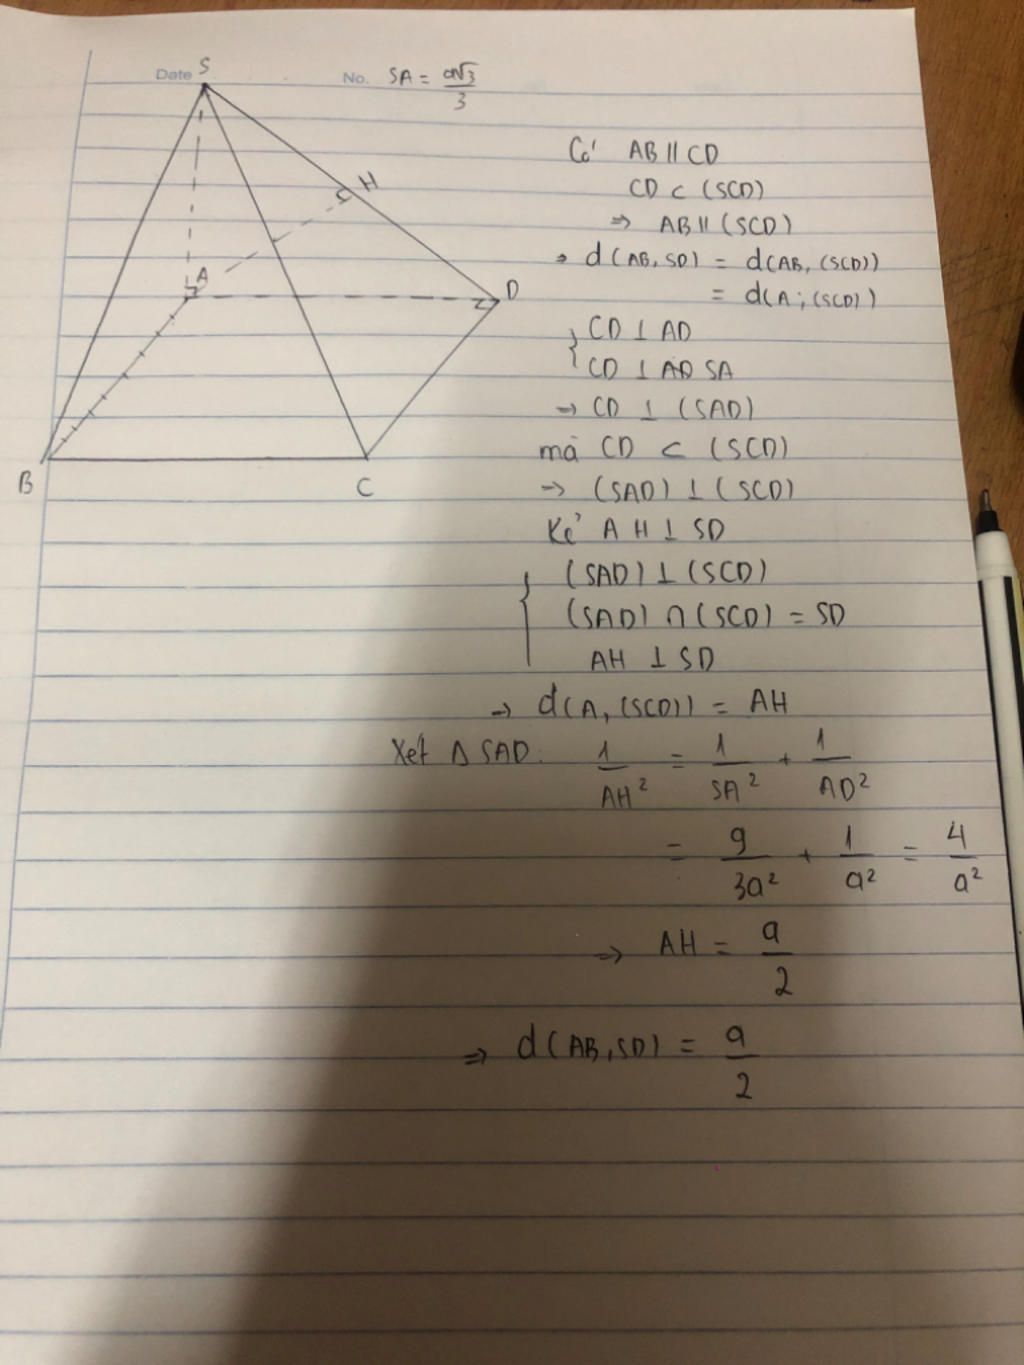 Date
S
No. SA = a√3/3
Có AB ∥ CD
CD ⊂ (SCD)
⇒ AB ∥ (SCD)
⇒ d(AB, SD) = d(AB, (SCD))
= d(A; (SCD))
{ CD ⊥ AD
CD ⊥ SA
→ CD ⊥ (SAD)
mà CD ⊂ (SCD)
→ (SAD) ⊥ (SCD)
Kẻ AH ⊥ SD
{ (SAD) ⊥ (SCD)
(SAD) ∩ (SCD) = SD
AH ⊥ SD
→ d(A, (SCD)) = AH
Xét Δ SAD: 1/AH² = 1/SA² + 1/AD²
= 9/3a² + 1/a² = 4/a²
⇒ AH = a/2
⇒ d(AB, SD) = a/2
H
A
D
B
C